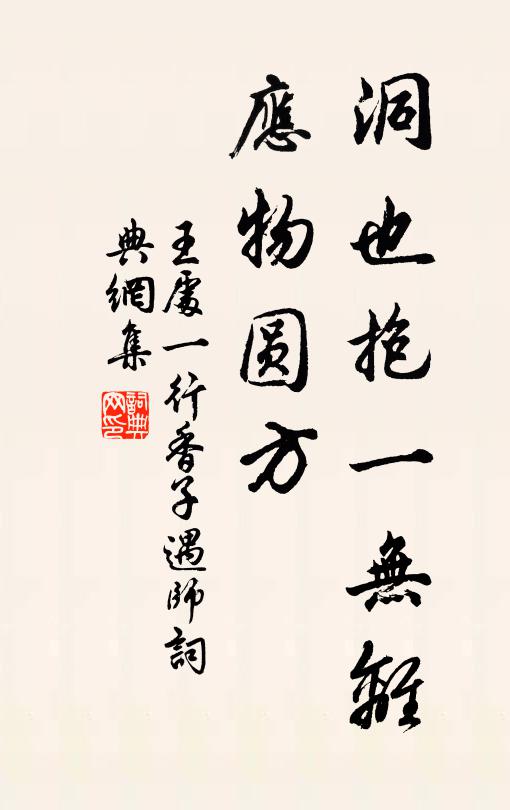 洞也抱一無離
應物圓方
王處一行香子遇師詞
典網集
詞典網印